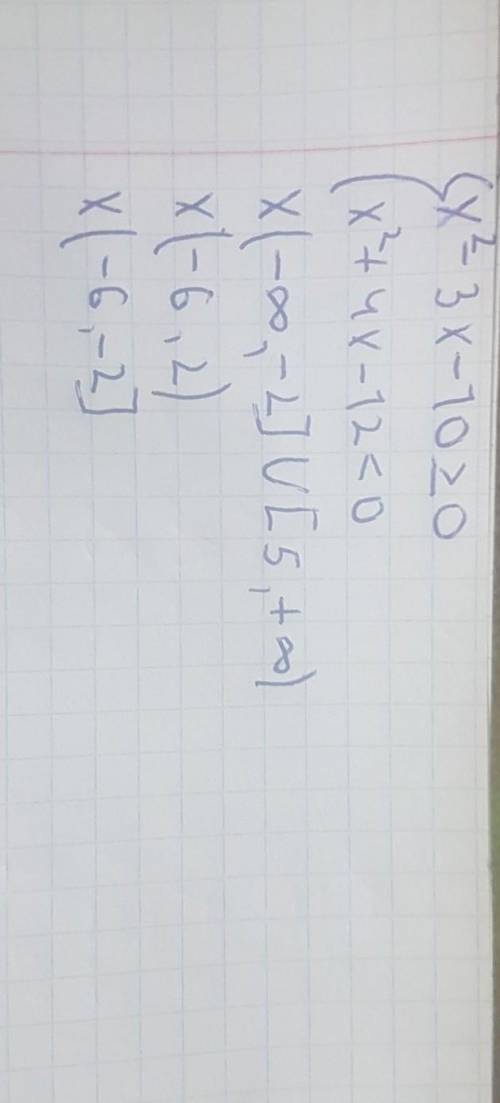 {x²-3x-10≥0
x²+4x-12<0
x(-∞,-2]U[5,+∞)
x(-6,2)
x(-6,-2]